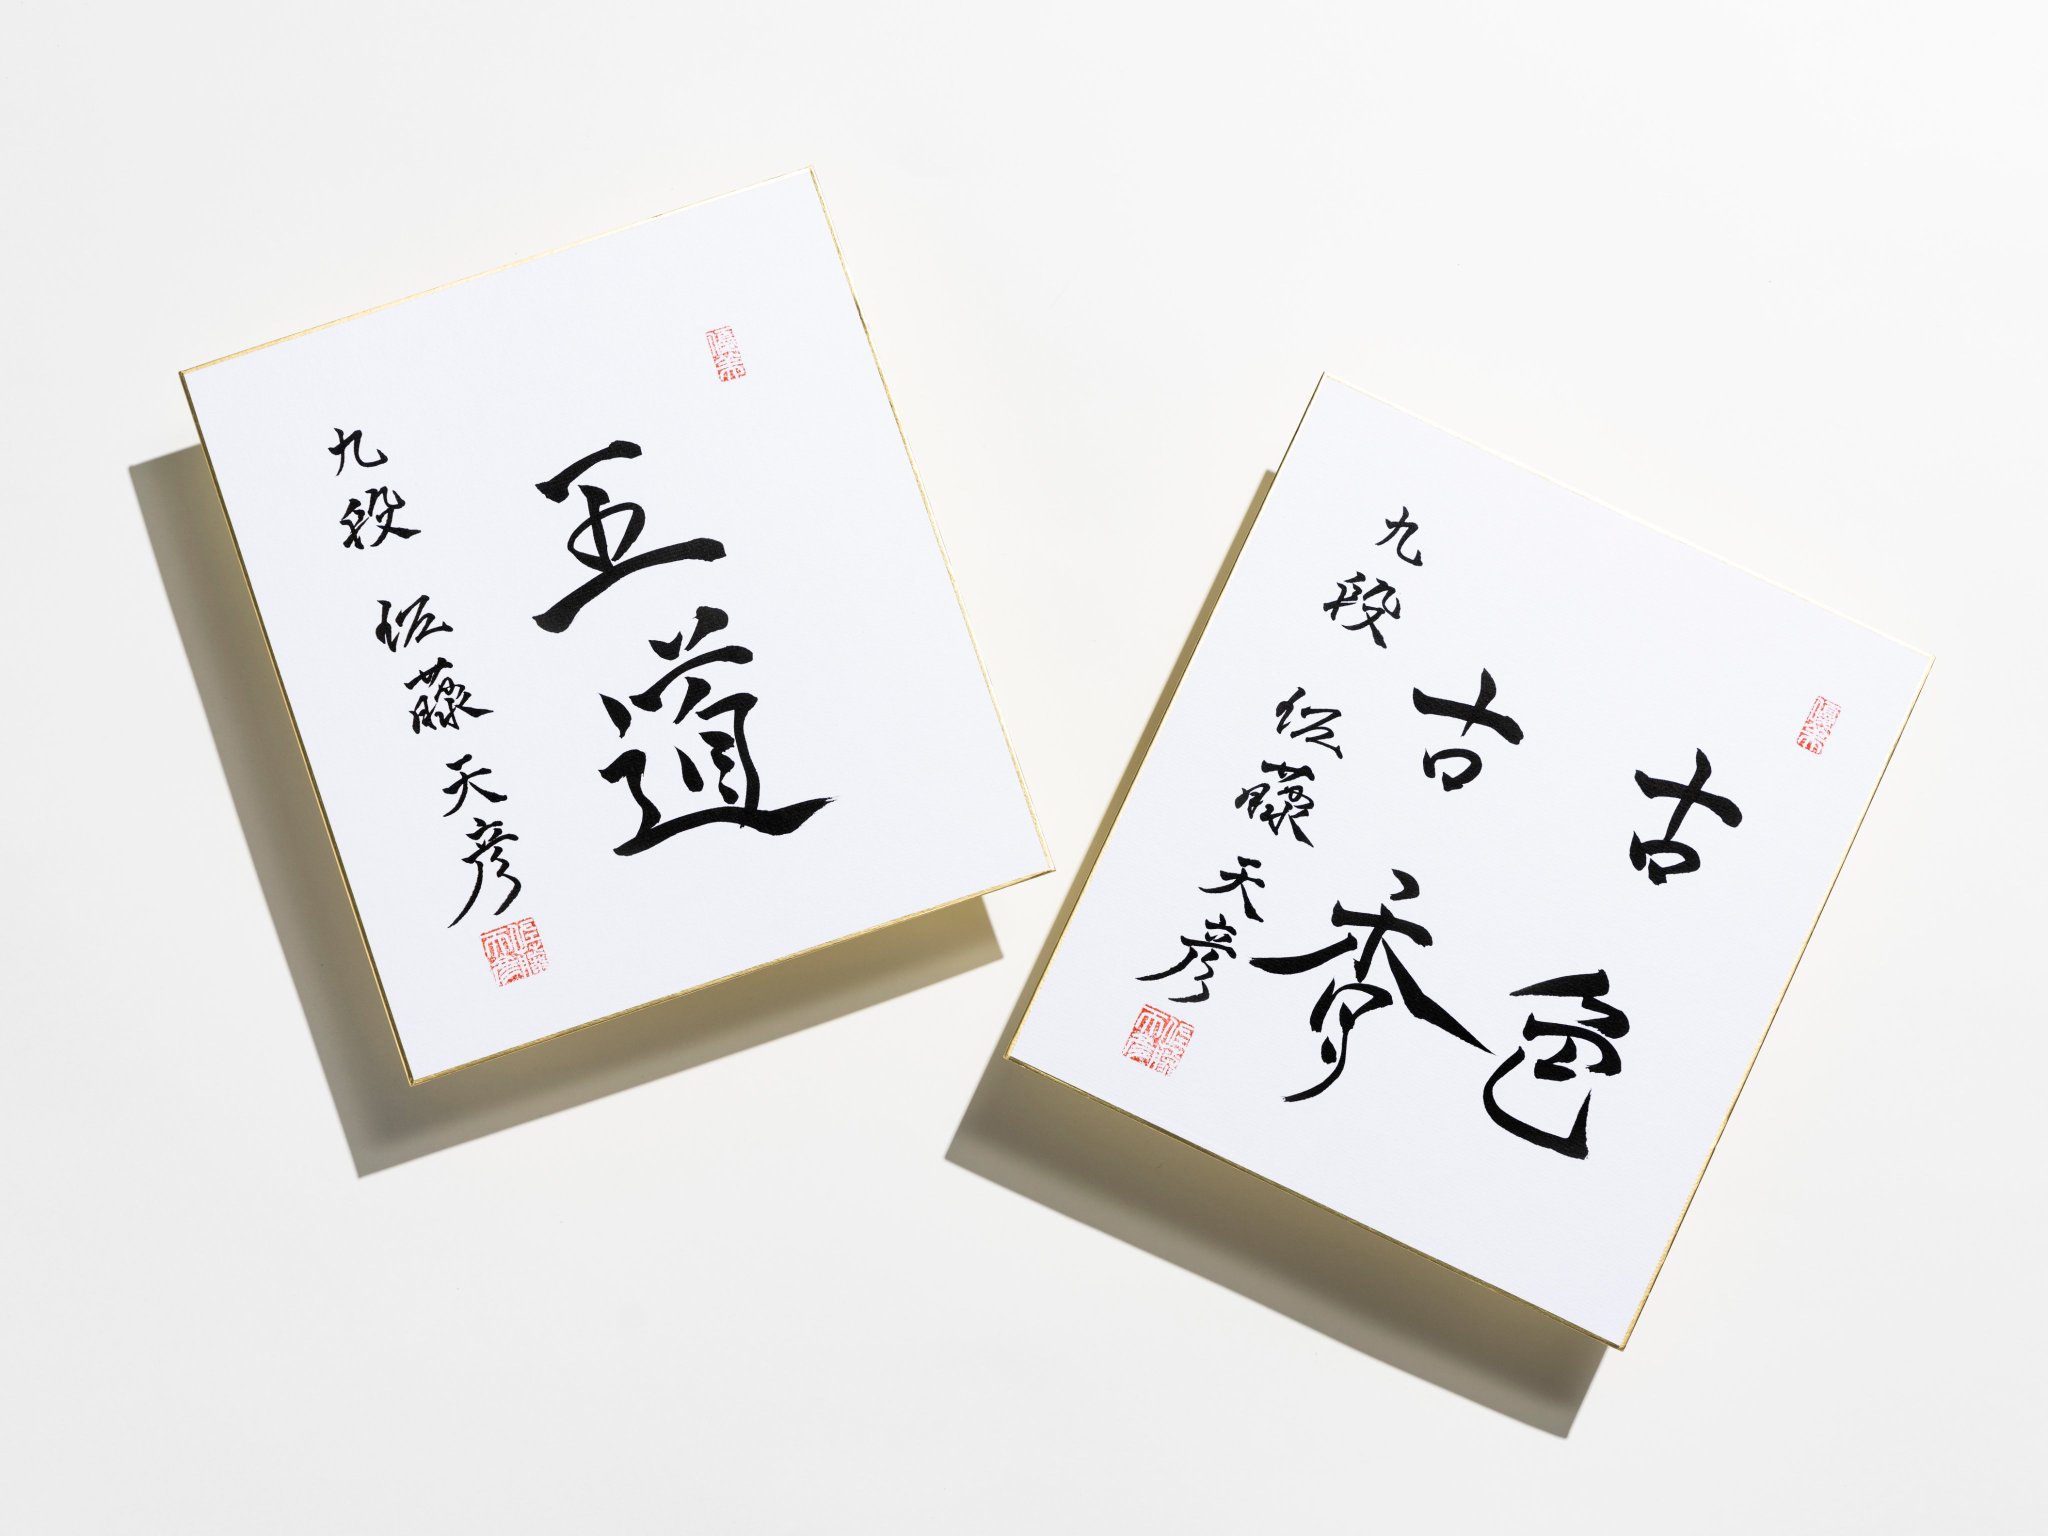 王道
九段 佐藤天彦
古色
古香
九段 佐藤天彦